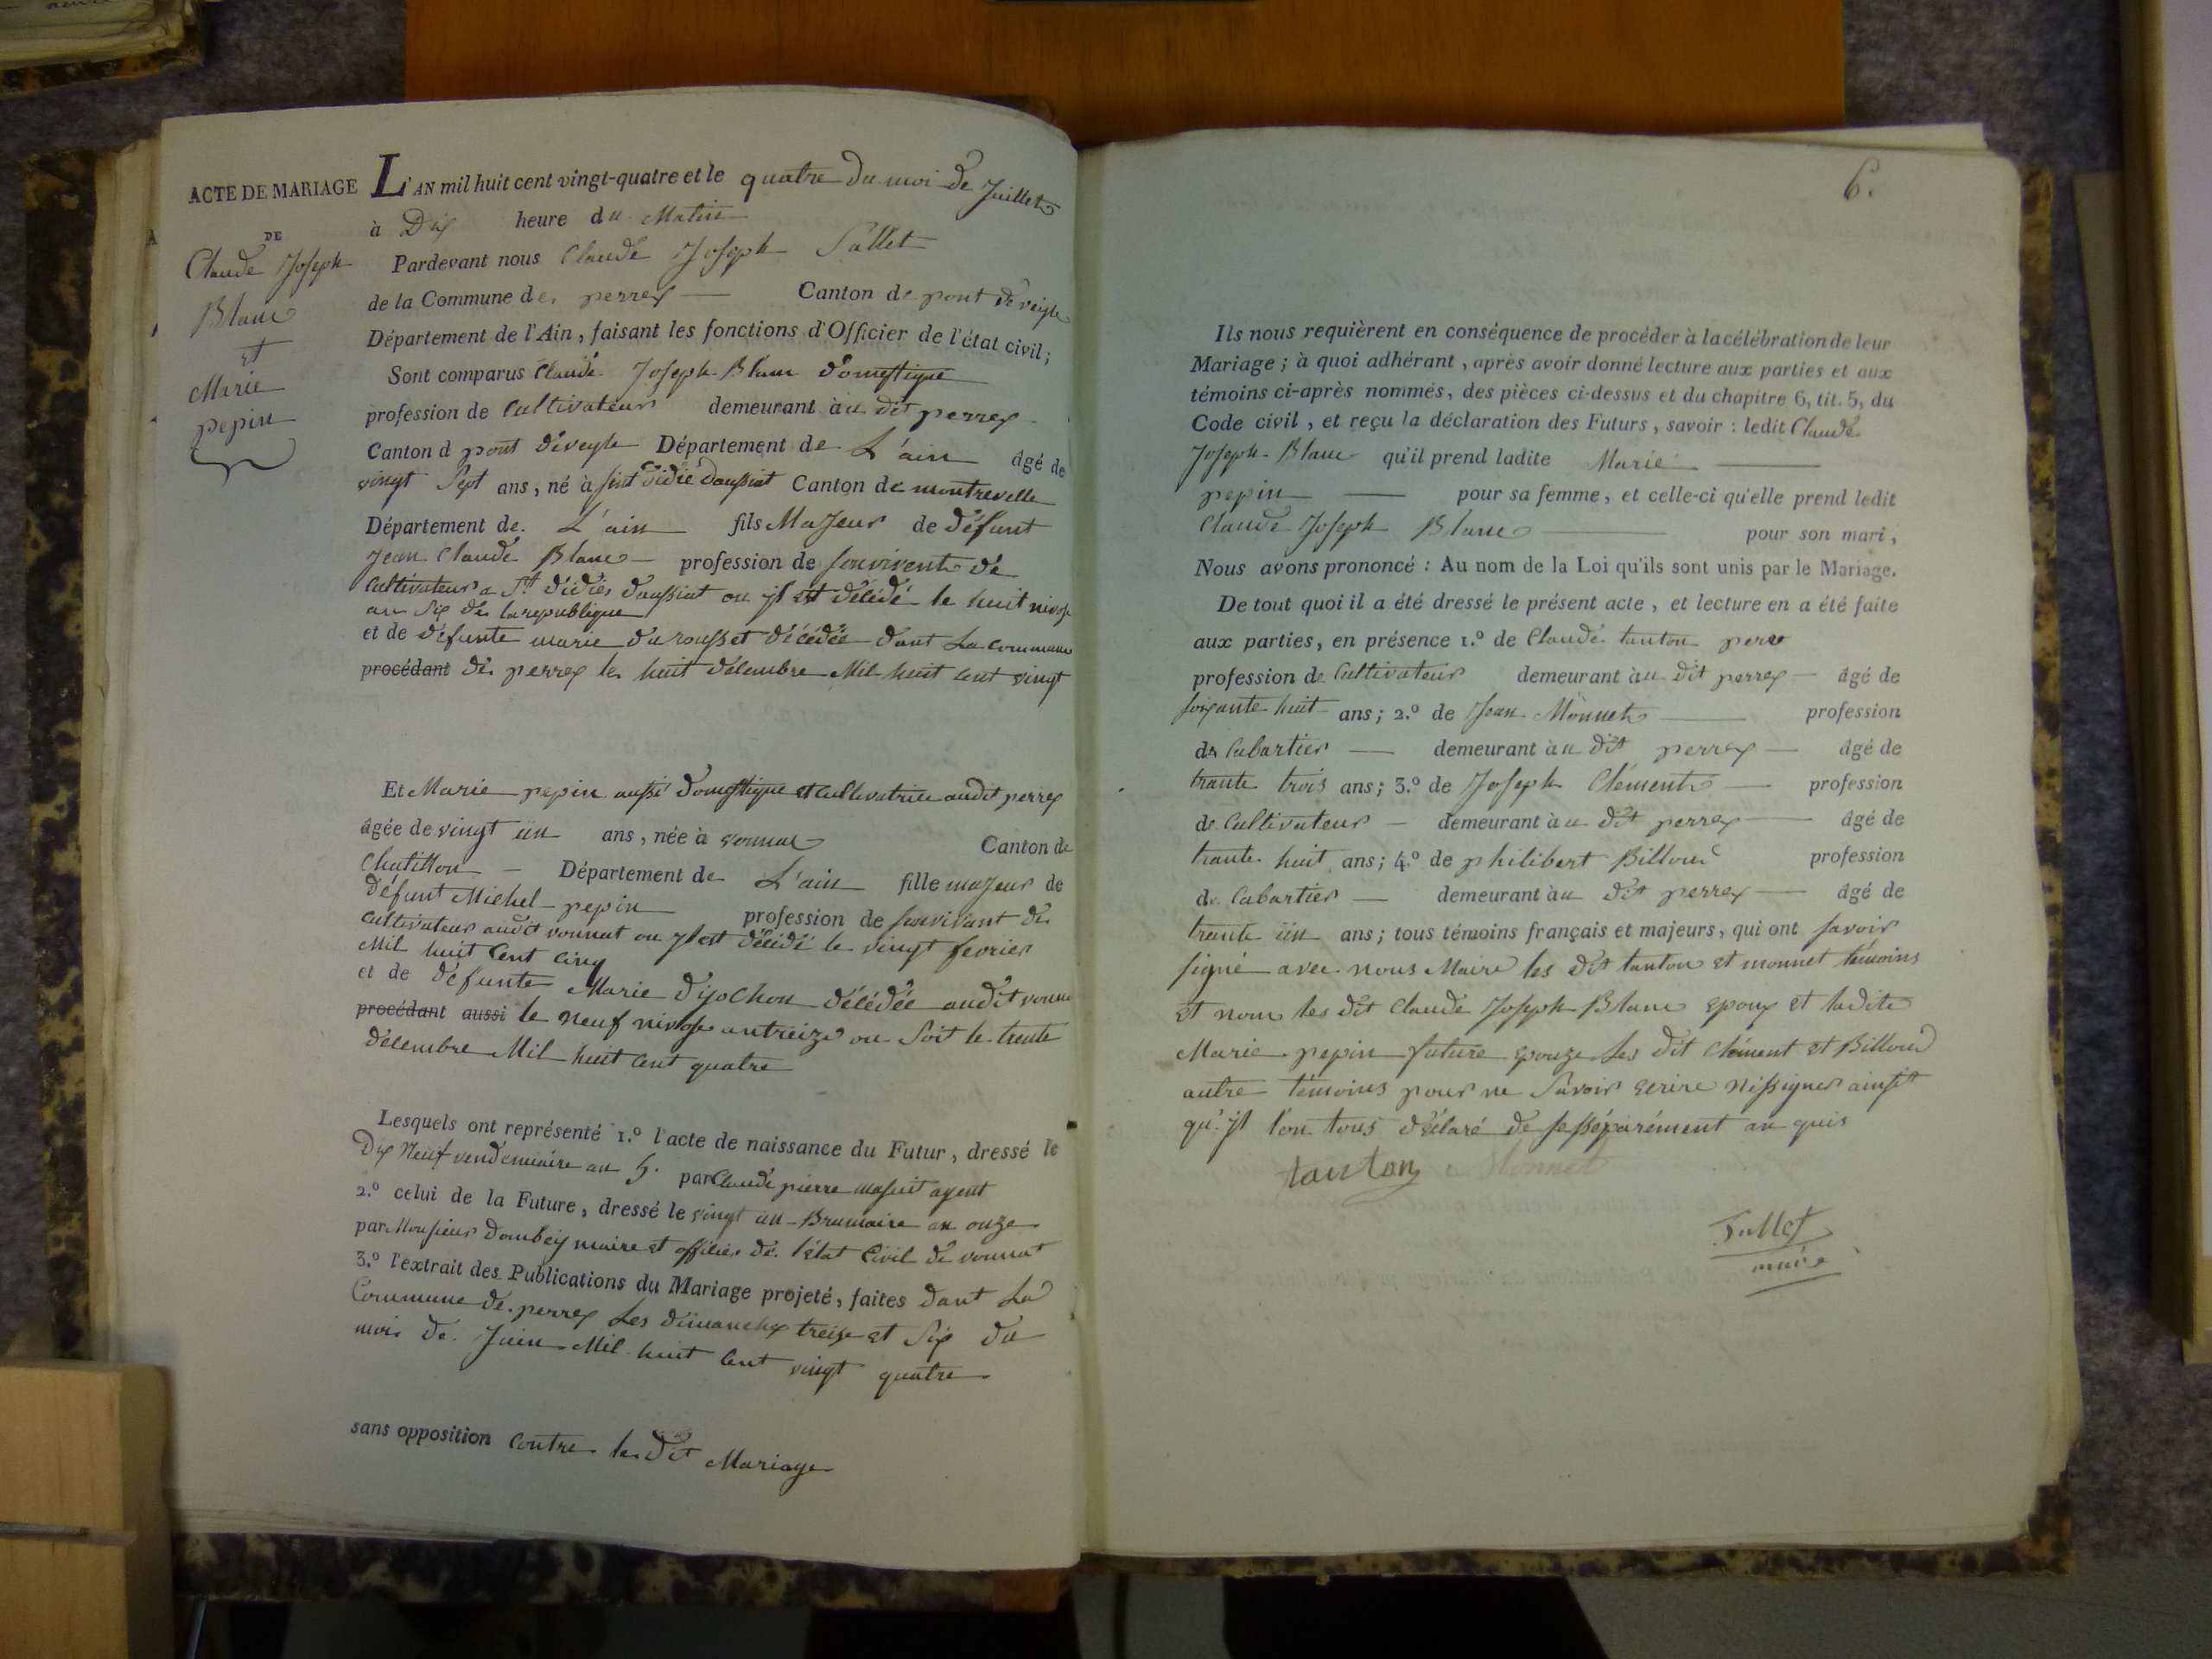 ACTE DE MARIAGE
DE
Claude Joseph
Blanc
et
Marie
pepin
L'AN mil huit cent vingt-quatre et le quatre du moi de Juillet
à Dix heure du Matin
Pardevant nous Claude Joseph Tallet
de la Commune de perrex Canton de pont de veyle
Département de l'Ain, faisant les fonctions d'Officier de l'état civil;
Sont comparus Claude Joseph Blanc domestique
profession de Cultivateur demeurant au dit perrex
Canton d pont deveyle Département de L'ain âgé de
vingt Sept ans, né à sint didié daussiat Canton de montrevelle
Département de L'ain fils Majeur de défunt
Jean Claude Blanc profession de
Cultivateur a St didier daussiat ou jl est décédé le huit nivose
an six de la republique
et de défunte marie du rousset décédée dant La commune
procédant de perrex le huit décembre Mil huit cent vingt
Et Marie pepin aussi domestique et cultivatrice audit perrex
âgée de vingt un ans, née à vonnas Canton de
Chatillon Département de L'ain fille majeur de
défunt Michel pepin profession de de
cultivateur audit vonnat ou jl est décédé le vingt fevrier
Mil huit Cent cinq
et de défunte Marie décédée audit
procédant aussi le neuf nivose antreize ou Soit le trente
décembre Mil huit cent quatre
Lesquels ont représenté 1.º l'acte de naissance du Futur, dressé le
Dix Neuf vendemiaire an 5. par Claude pierre agent
2.º celui de la Future, dressé le vingt un Brumaire an onze
par Monsieur Dombey maire et officier de l'état Civil de vonnat
3.º l'extrait des Publications du Mariage projeté, faites dant La
Commune de perrex Les dimanches treize et Six du
mois de Juin Mil huit cent vingt quatre
sans opposition contre le dit Mariage
6.
Ils nous requièrent en conséquence de procéder à la célébration de leur
Mariage; à quoi adhérant, après avoir donné lecture aux parties et aux
témoins ci-après nommés, des pièces ci-dessus et du chapitre 6, tit. 5, du
Code civil, et reçu la déclaration des Futurs, savoir: ledit Claude
Joseph Blanc qu'il prend ladite Marie
pepin pour sa femme, et celle-ci qu'elle prend ledit
Claude Joseph Blanc pour son mari,
Nous avons prononcé: Au nom de la Loi qu'ils sont unis par le Mariage.
De tout quoi il a été dressé le présent acte, et lecture en a été faite
aux parties, en présence 1.º de Claude tanton
profession de Cultivateur demeurant au dit perrex âgé de
soixante huit ans; 2.º de Jean Monnet profession
de Cabartier demeurant au dit perrex âgé de
trante trois ans; 3.º de Joseph Clément profession
de Cultivateur demeurant au dit perrex âgé de
trante huit ans; 4.º de philibert Billoud profession
de Cabartier demeurant au dit perrex âgé de
trante un ans; tous témoins français et majeurs, qui ont savoir
signé avec nous Maire les dit tanton et monnet témoins
et nom les dit Claude Joseph Blanc epoux et ladite
Marie pepin future epouze les dit clément et Billoud
autre témoins pour ne Savoir ecrire nissigner ainsi
qu'jl l'on tous déclaré de sesséparément an quis
tanton Monnet
Tallet
maire